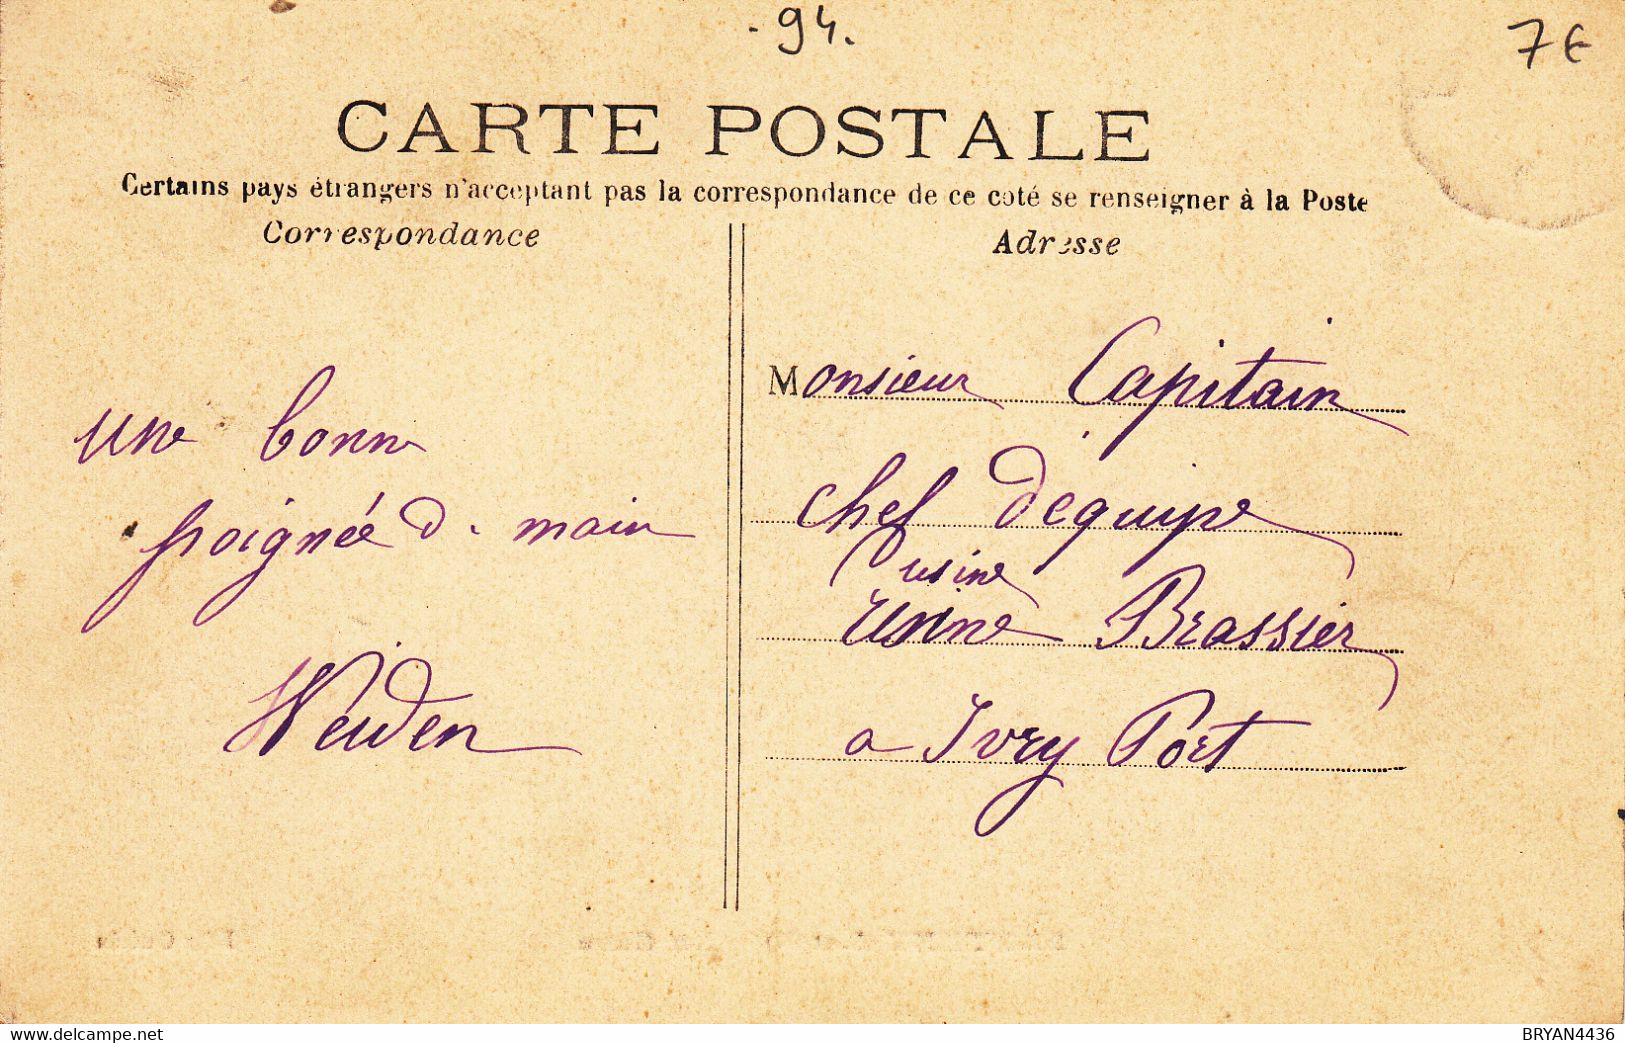 - 94.
7€
CARTE POSTALE
Certains pays étrangers n'acceptant pas la correspondance de ce coté se renseigner à la Poste
Correspondance
Adresse
une bonne
poignée d. main
Weiden
Monsieur Capitain
chef d'équipe
usine
Usine Brassier
a Ivry Port
delcampe.net
BRYAN4436